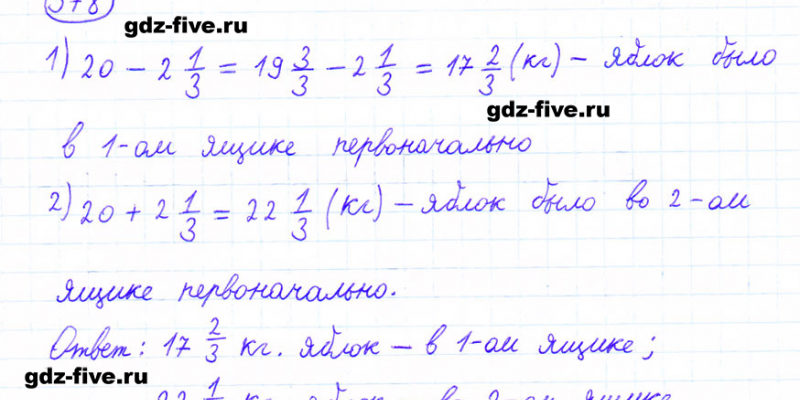 578
gdz-five.ru
1) 20 - 2 1/3 = 19 3/3 - 2 1/3 = 17 2/3 (кг) - яблок было
gdz-five.ru
в 1-ом ящике первоначально
2) 20 + 2 1/3 = 22 1/3 (кг) - яблок было во 2-ом
ящике первоначально.
Ответ: 17 2/3 кг. яблок - в 1-ом ящике;
gdz-five.ru
22 1/3 кг яблок - во 2-ом ящике